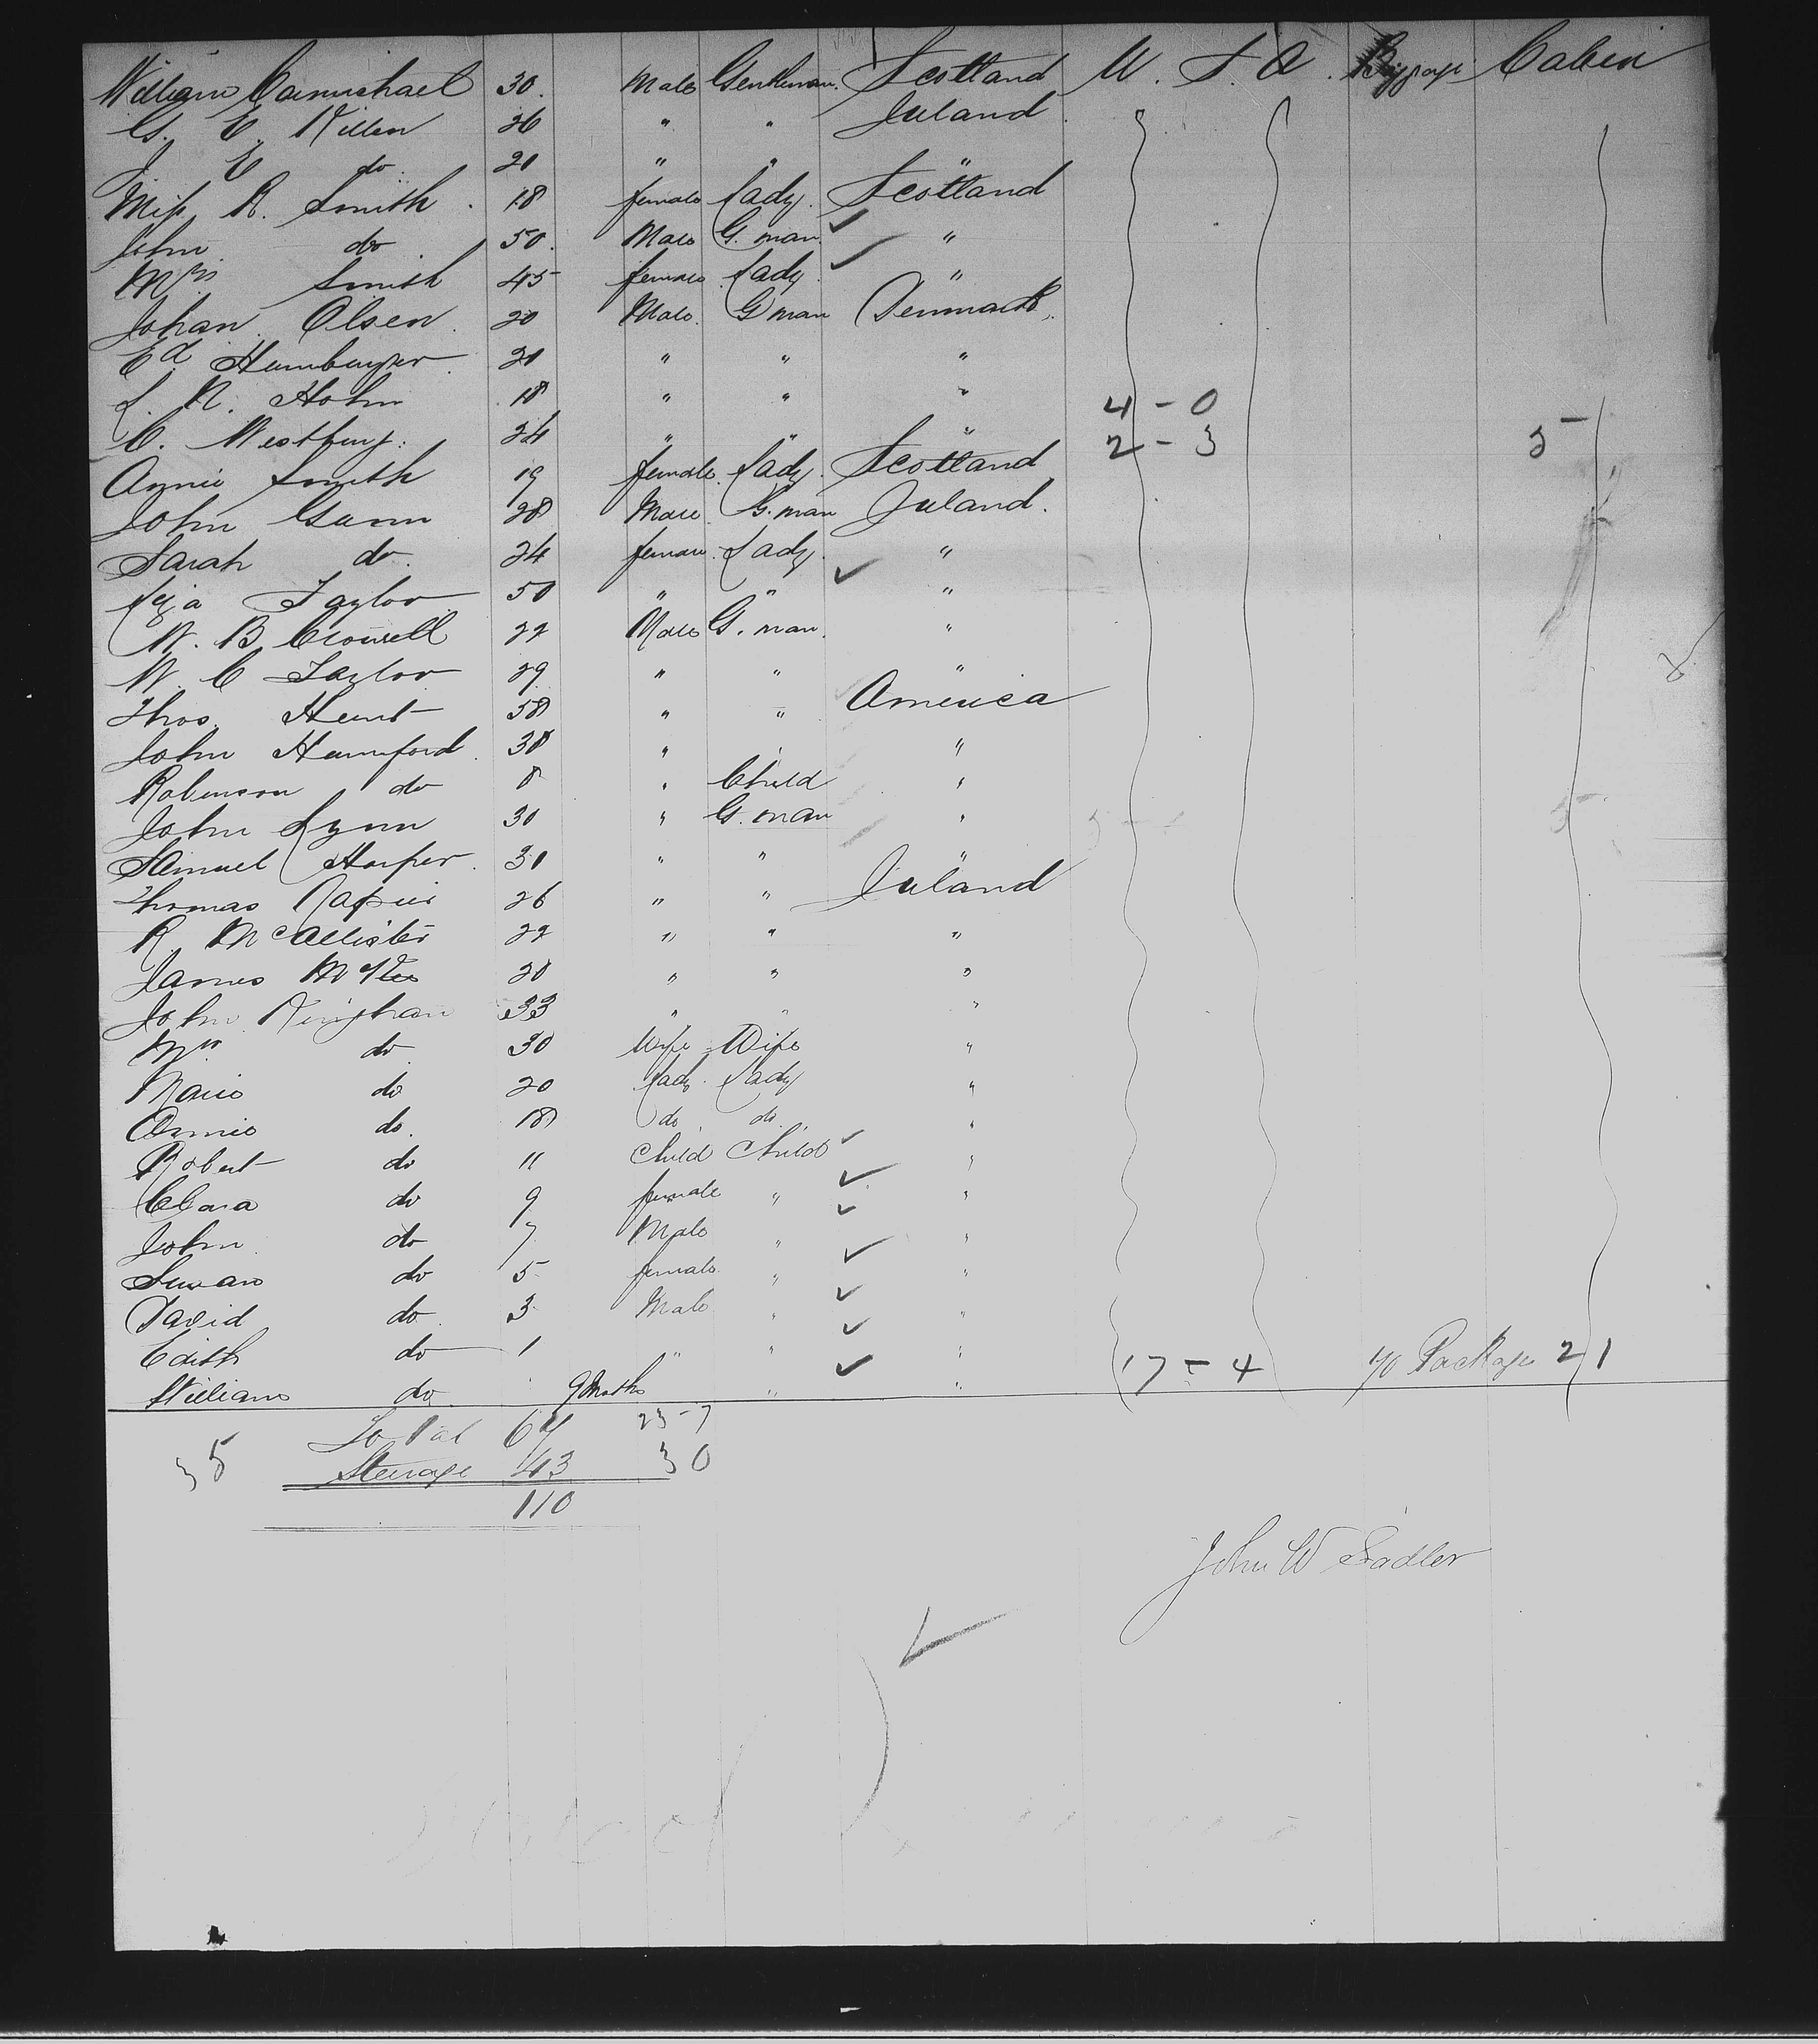 William Carmichael 30. Male Gentleman. Scotland U. S. A. Baggage Cabin
G. E. Killen 26 " " Ireland
J E do 21 " " "
Miss R. Smith 18 female Lady. Scotland
John do 50. Male G. man. "
Mrs Smith 45 female Lady "
Johan Olsen 20 Male. G man Denmark
Ed. Hamburger 21 " " "
L. N. Hohn 18 " " " 4 - 0
C. Westburg. 24 " " " 2 - 3 5
Annie Smith 19 female Lady. Scotland
John Gunn 28 Male G. man Ireland.
Sarah do. 24 female Lady. "
Taylor 50 " " "
W. B. Crowell 22 Male G. man. "
W. C Taylor 29 " " "
Thos. Hunt 58 " " America
John Hannford 38 " "
Robinson do 8 " Child "
John Lynn 30 " G. man "
Samuel Harper 31 " " "
Thomas Napier 26 " " Ireland
R. McAllister 22 " " "
James 20 " " "
John Kinghan 33 " " "
Mrs do 30 Wife Wife "
do 20 Lady Lady "
Annie do. 18 do do. "
Robert do 11 Child Child "
Clara do 9 female " "
John do 7 Male " "
Susan do 5 female " "
David do. 3 Male " "
Edith do 1 " " " 17 - 4 40 Package 21
William do. 9 Months " "
Total 67 23-7
35 Steerage 43 30
110
John W Sadler